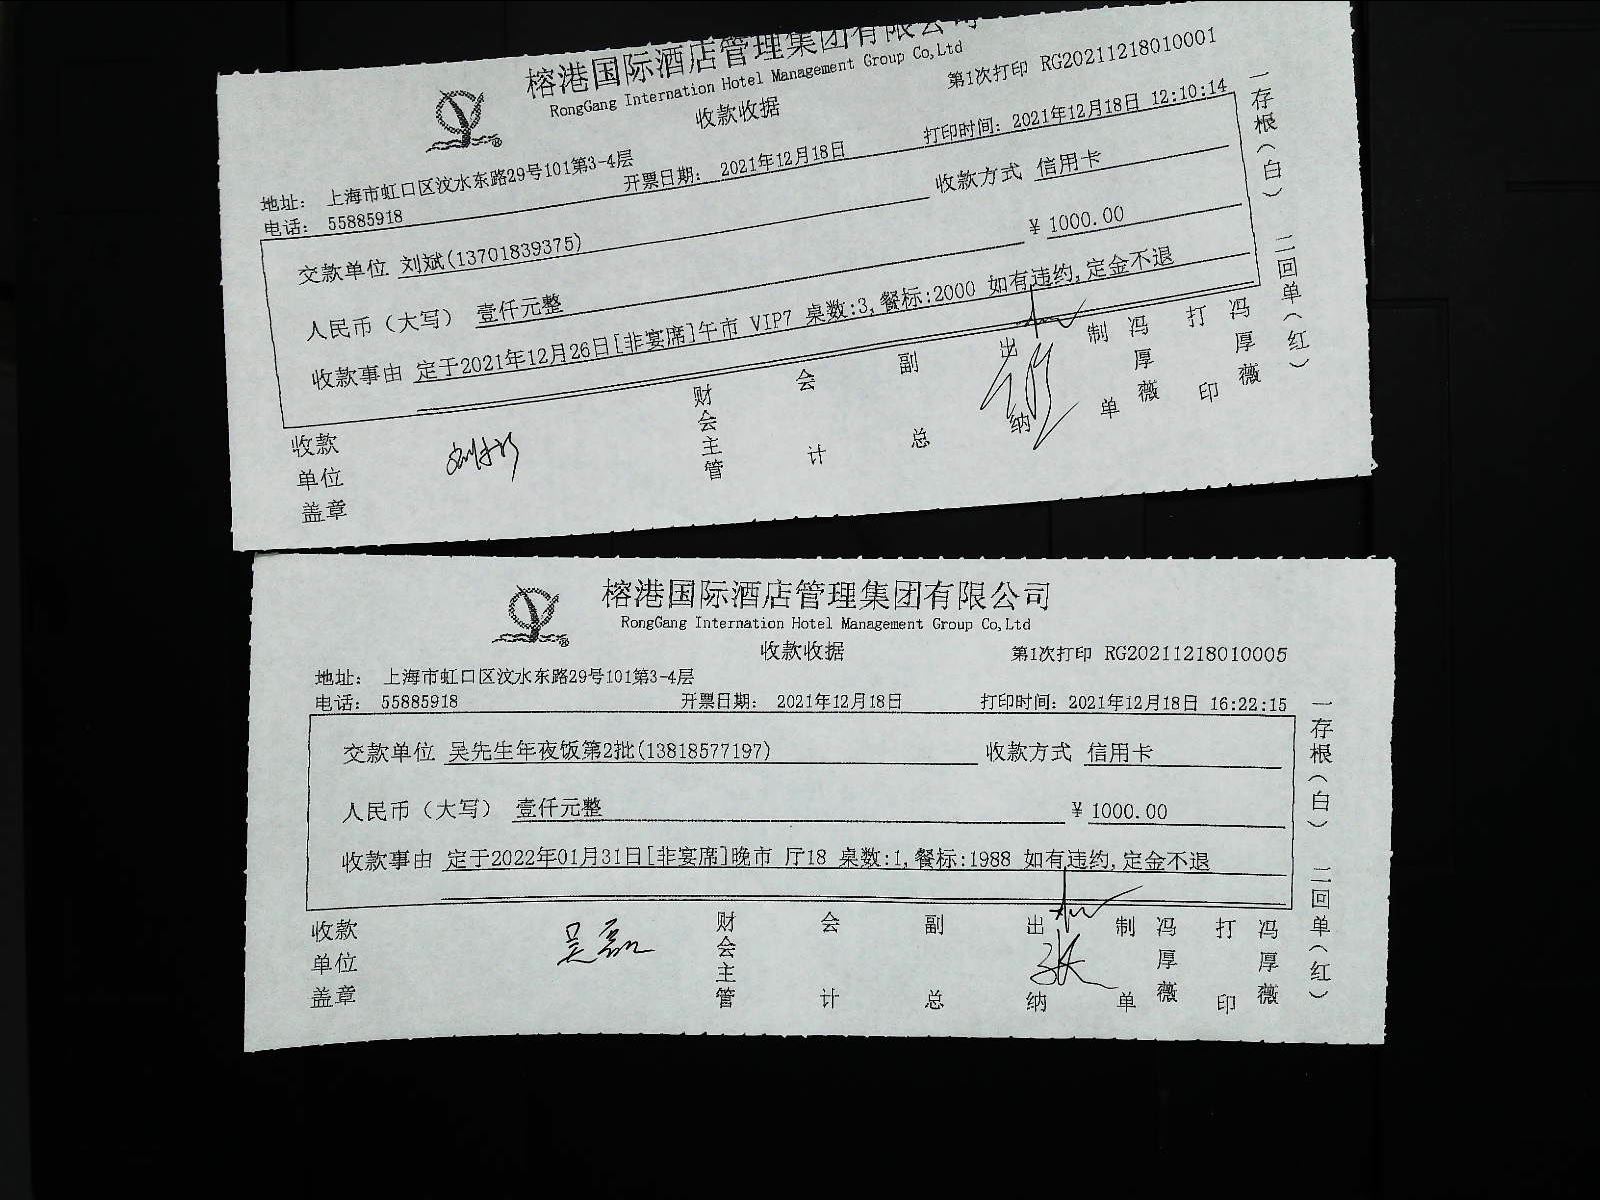 榕港国际酒店管理集团有限公司
RongGang Internation Hotel Management Group Co,Ltd
收款收据
第1次打印 RG20211218010001
地址： 上海市虹口区汶水东路29号101第3-4层
电话： 55885918 开票日期： 2021年12月18日 打印时间：2021年12月18日 12:10:14
交款单位 刘斌(13701839375) 收款方式 信用卡
人民币（大写） 壹仟元整 ¥ 1000.00
收款事由 定于2021年12月26日[非宴席]午市 VIP7 桌数:3,餐标:2000 如有违约,定金不退
收款单位盖章 财会主管 会计 副总 出纳 制单 冯厚薇 打印 冯厚薇
一存根（白） 二回单（红）
榕港国际酒店管理集团有限公司
RongGang Internation Hotel Management Group Co,Ltd
收款收据 第1次打印 RG20211218010005
地址： 上海市虹口区汶水东路29号101第3-4层
电话： 55885918 开票日期： 2021年12月18日 打印时间：2021年12月18日 16:22:15
交款单位 吴先生年夜饭第2批(13818577197) 收款方式 信用卡
人民币（大写） 壹仟元整 ¥ 1000.00
收款事由 定于2022年01月31日[非宴席]晚市 厅18 桌数:1,餐标:1988 如有违约,定金不退
收款单位盖章 吴磊 财会主管 会计 副总 出纳 制单 冯厚薇 打印 冯厚薇
一存根（白） 二回单（红）